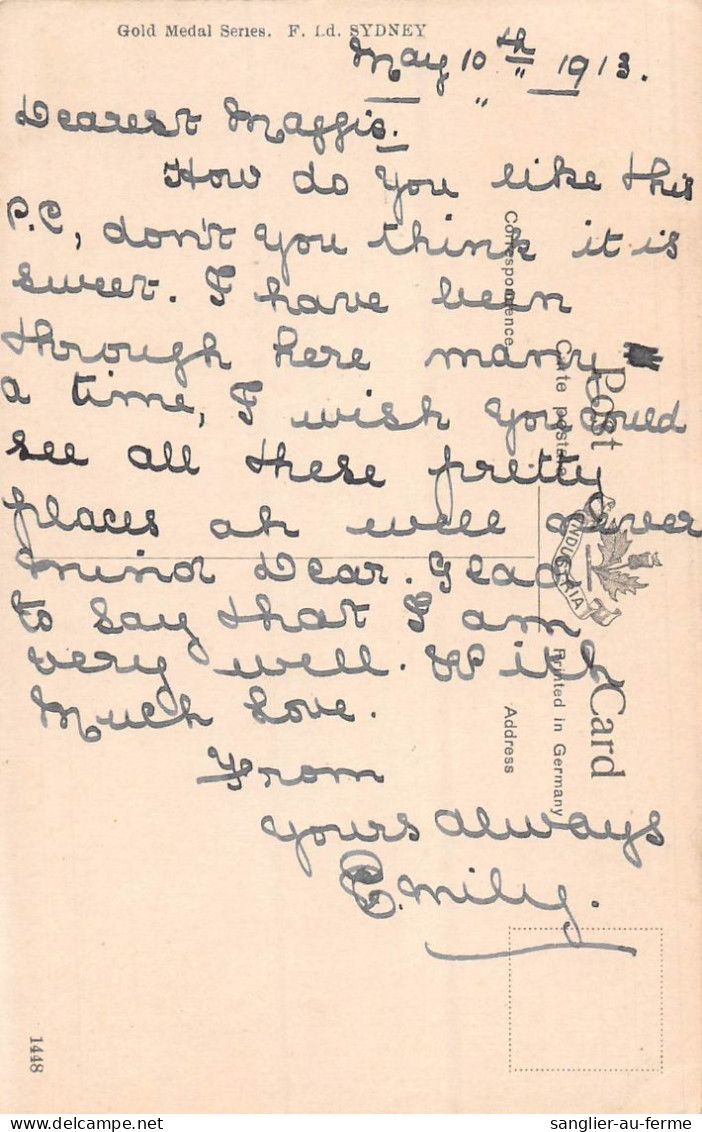 Gold Medal Series. F. Ld. SYDNEY
May 10th 1913.
Dearest Maggie.
How do you like this
P.C, don't you think it is
sweet. I have been
through here many
a time, I wish you could
see all these pretty
places ah well never
mind Dear. Glad
to say that I am
very well. With
Much Love.
From
yours always
Emily.
Correspondence
Address
Carte postale
Printed in Germany
Post Card
INDUSTRIA
1448
sanglier-au-ferme